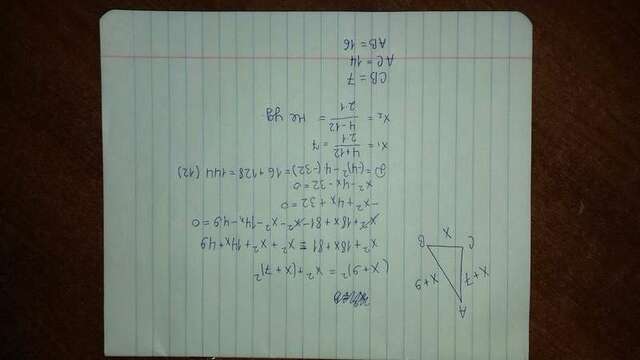 A
x+7
x+9
C
B
x
(x+9)² = x² + (x+7)²
x² + 18x + 81 = x² + x² + 14x + 49
x² + 18x + 81 - x² - x² - 14x - 49 = 0
-x² + 4x + 32 = 0
x² - 4x - 32 = 0
D = (4)² - 4·(-32) = 16 + 128 = 144 (12)
x₁ = 4+12 / 2·1 = 7
x₂ = 4-12 / 2·1 = не уд.
CB = 7
AC = 14
AB = 16